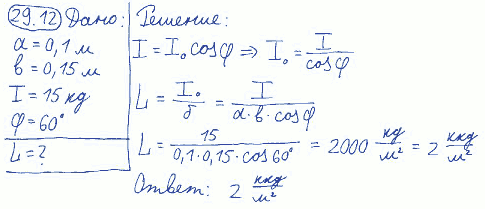 29.12 Дано:
a = 0,1 м
в = 0,15 м
I = 15 кд
φ = 60°
L = ?
Решение:
I = I₀ cosφ ⇒ I₀ = I / cosφ
L = I₀ / б = I / a·в·cosφ
L = 15 / 0,1·0,15·cos60° = 2000 кд / м² = 2 ккд / м²
Ответ: 2 ккд / м²